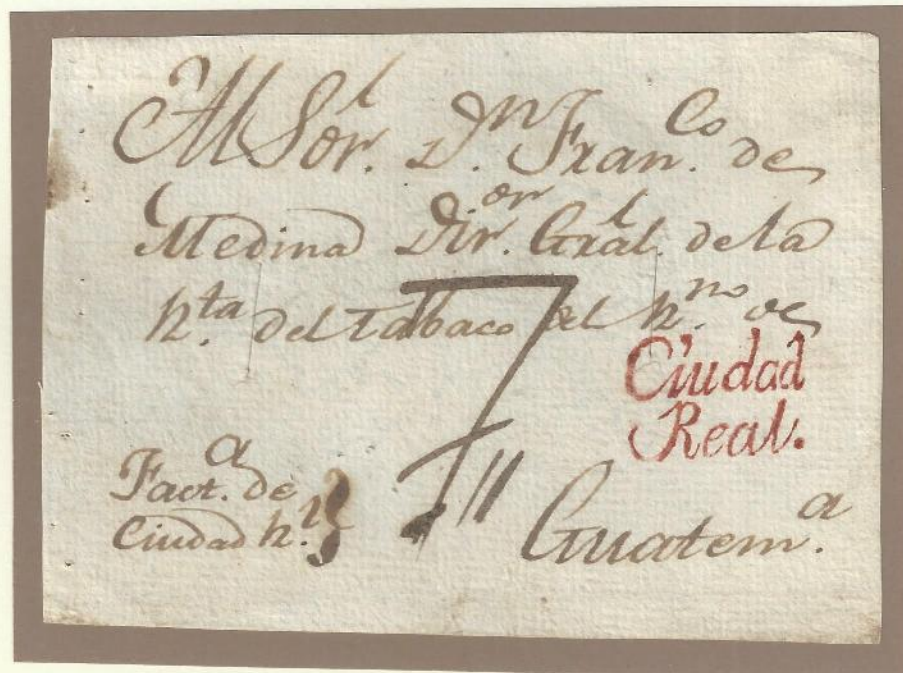 Al Sor.l Dn. Franco. de
Medina Diror. Gral. de la
Rta. del tabaco del Rno. de
Ciudad
Real.
7
Facta. de
Ciudad Rl.
Guatema.